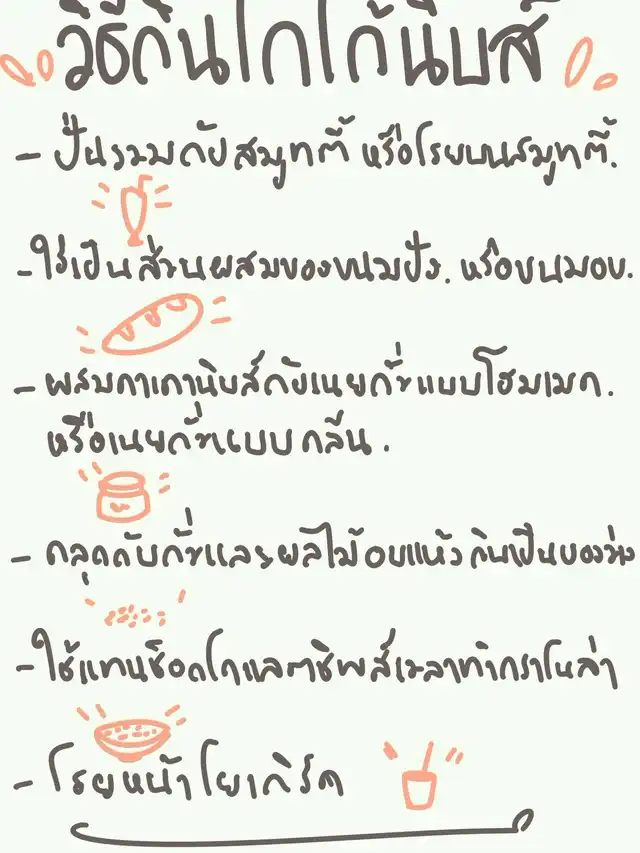 วิธีกินโกโก้นิบส์
- ปั่นรวมกับสมูทตี้ หรือโรยบนสมูทตี้.
- ใช้เป็นส่วนผสมของขนมปัง. หรือขนมอบ.
- ผสมคาเคานิบส์กับเนยถั่วแบบโฮมเมด.
หรือเนยถั่วแบบคลีน.
- คลุกกับถั่วและผลไม้อบแห้ง กินเป็นของว่าง
- ใช้แทนช็อคโกแลตชิพส์เวลาทำกราโนล่า
- โรยหน้าโยเกิร์ต